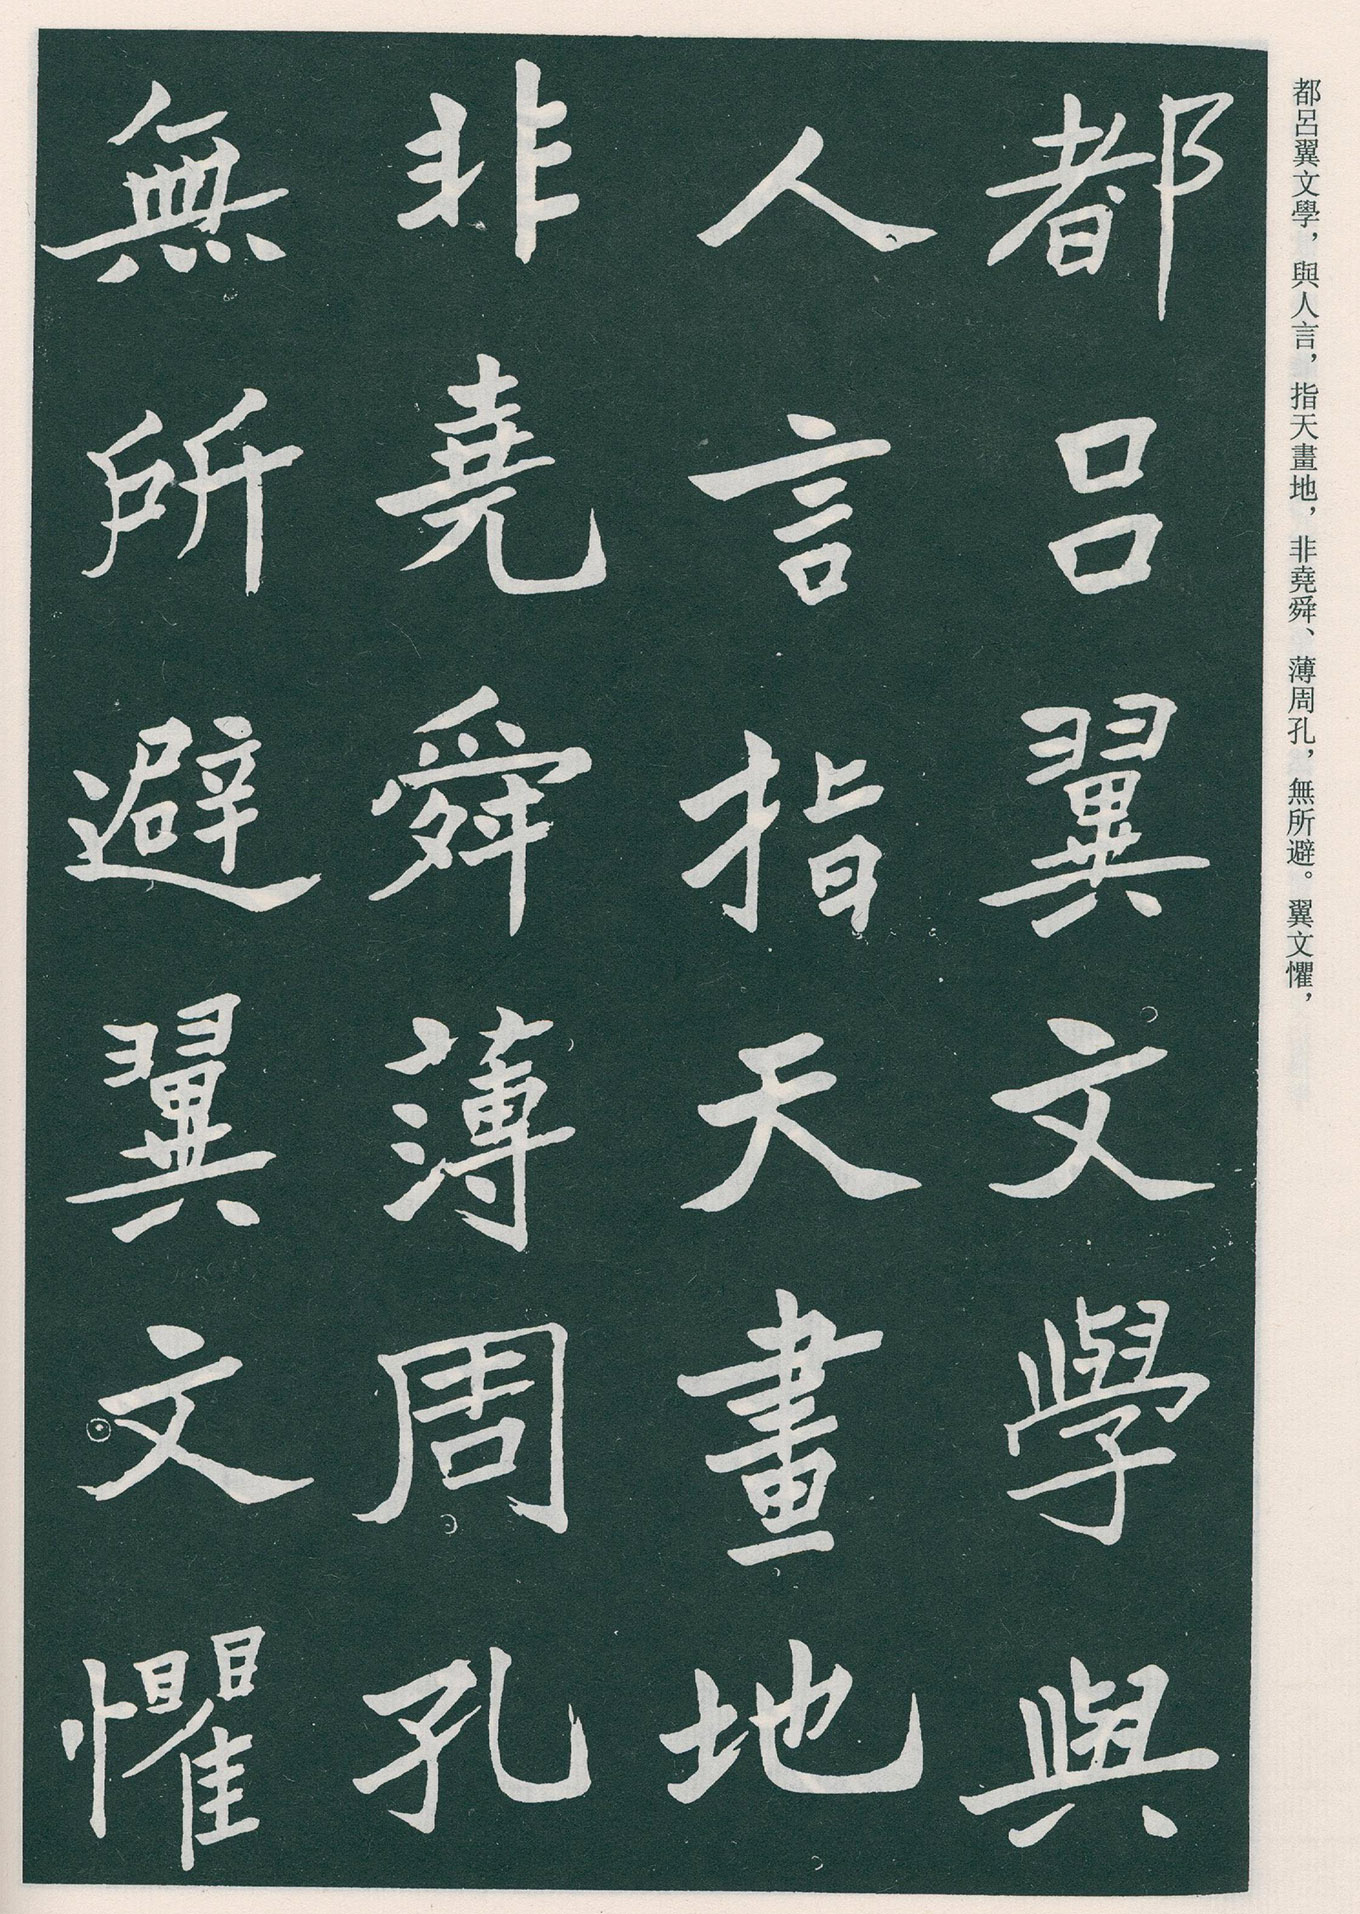 都呂翼文學，與人言，指天畫地，非堯舜、薄周孔，無所避。翼文懼，
都呂翼文學與
人言指天畫地
非堯舜薄周孔
無所避翼文懼